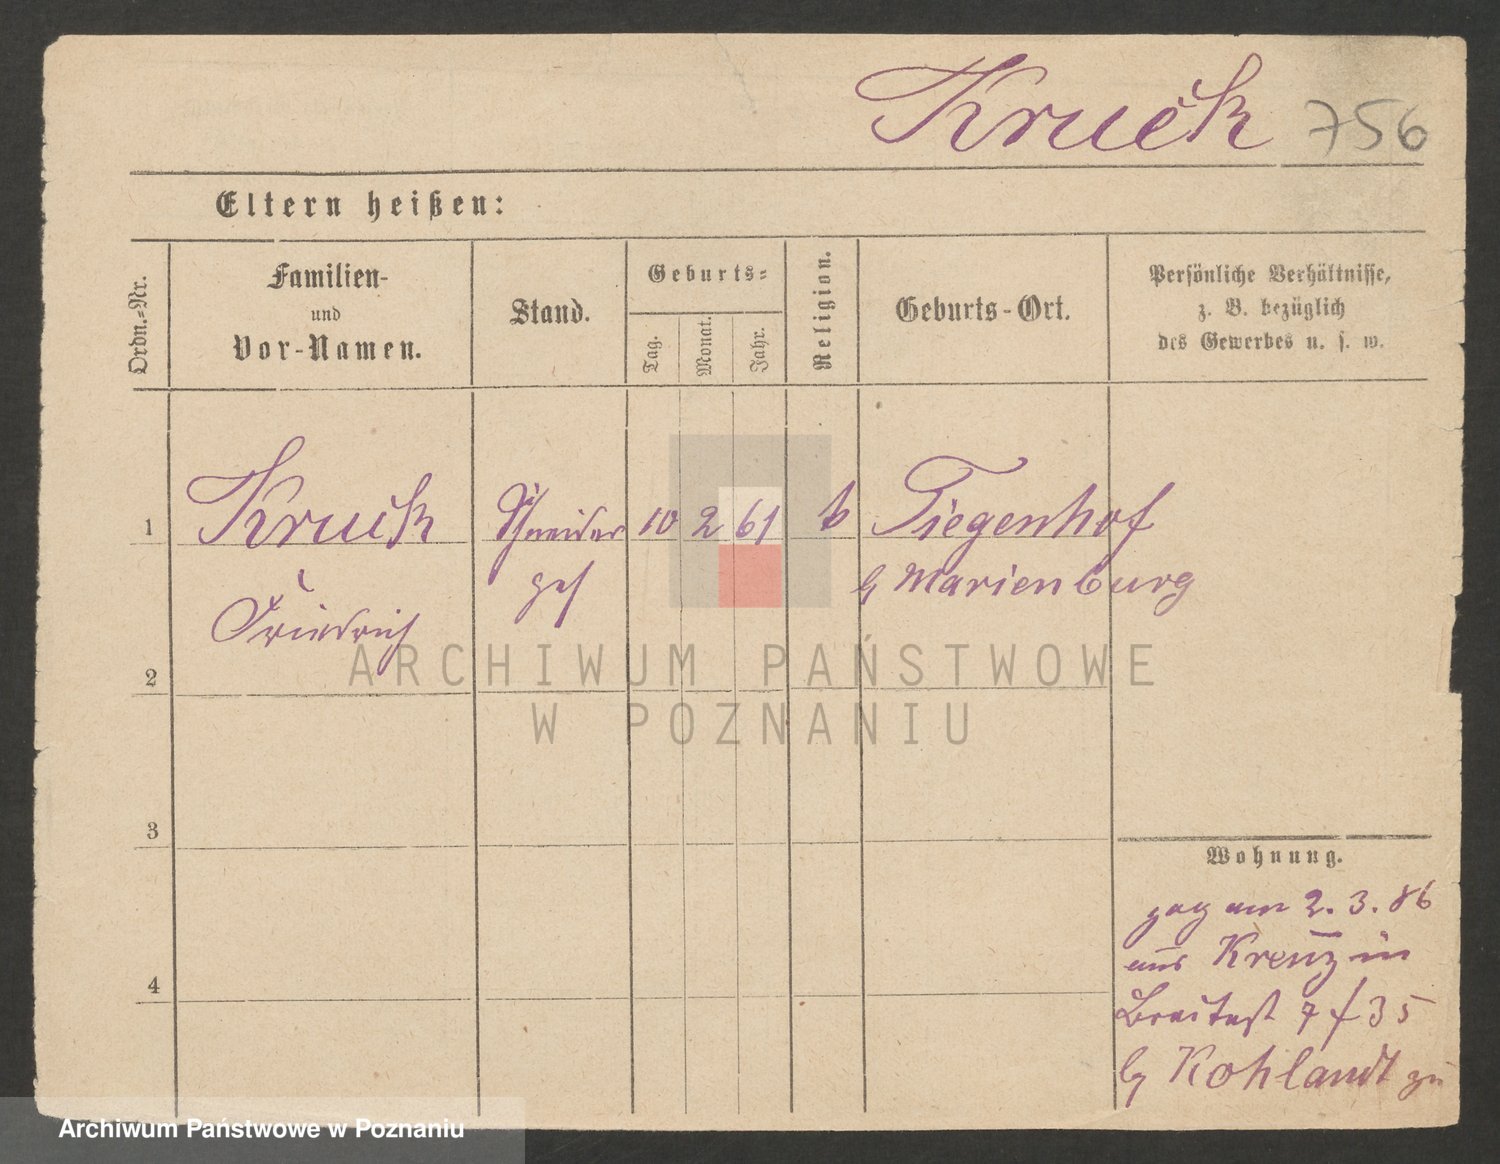 Kruck 756
Eltern heißen:
Ordn.-Nr.
Familien-
und
Vor-Namen.
Stand.
Geburts-
Tag.
Monat.
Jahr.
Religion.
Geburts-Ort.
Persönliche Verhältnisse,
z. B. bezüglich
des Gewerbes u. s. w.
1 Kruck Schneider 10 2 61 Tiegenhof
Friedrich ges b Marienburg
2
3
4
Wohnung.
zog am 2. 3. 86
aus Kreuz in
Breitest 7 / 35
b Kohlandt zu
ARCHIWUM PAŃSTWOWE
W POZNANIU
Archiwum Państwowe w Poznaniu